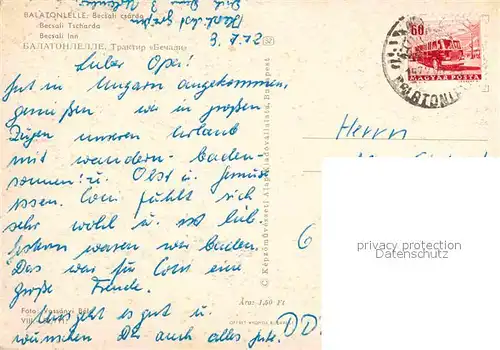 BALATONLELLE: Becsali csárda
Becsali Tscharda
Becsali Inn
БАЛАТОНЛЕЛЛЕ, Трактир «Бечали»
3.7.72
60
MAGYAR POSTA
BALATONL
Lieber Opa!
Gut in Ungarn angekommen,
genießen wir in großen
Zügen unseren Urlaub
mit wandern - baden -
sonnen! u. Obst u. Gemüse
essen. Coni fühlt sich
sehr wohl u. ist lieb
gestern waren wir baden.
Das war für Coni eine
große Freude.
Uns geht es gut u.
wünschen Dir auch alles gute.
Herrn
6
DD
© Képzőművészeti Alap Kiadóvállalata, Budapest
Ára: 1,60 Ft
Foto: Vassányi Béla
privacy protection
www.ansichtskartenversand.com